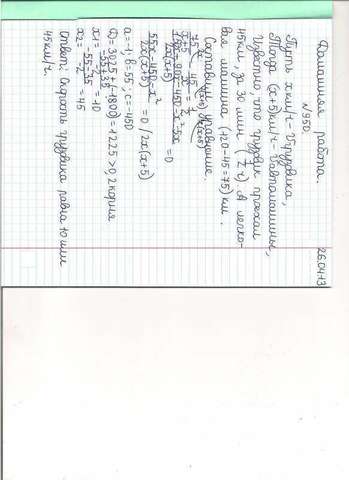 26.04.13
Домашняя работа.
№950.
Пусть x км/ч - V грузовика,
Тогда (x+5) км/ч - V автомашины,
Известно, что грузовик проехал
45 км, за 30 мин (1/2 ч). А легко-
вая машина (120-45=75) км.
Составим уравнение.
75/x+5 - 45/x = 1/2
150x-90x-450-x²-5x/2x(x+5) = 0
55x-450-x²/2x(x+5) = 0 /2x(x+5)
a=-1; b=55; c=-450
D=3025+(-1800)=1225>0, 2 корня
x1 = -55+35/-2 = 10
x2 = -55-35/-2 = 45
Ответ: Скорость грузовика равна 10 или
45 км/ч.